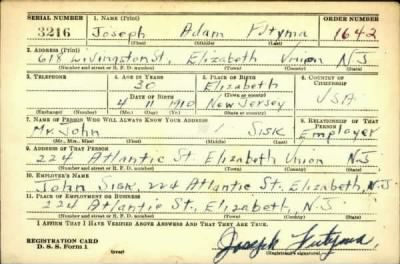 SERIAL NUMBER 1. NAME (Print) ORDER NUMBER
3216 Joseph Adam Futyma 1642
(First) (Middle) (Last)
2. ADDRESS (Print)
618 Livingston St., Elizabeth Union NJ
(Number and street or R. F. D. number) (Town) (County) (State)
3. TELEPHONE 4. AGE IN YEARS 5. PLACE OF BIRTH 6. COUNTRY OF CITIZENSHIP
30 Elizabeth
DATE OF BIRTH (Town or county)
4 11 1910 New Jersey USA
(Exchange) (Number) (Mo.) (Day) (Yr.) (State or country)
7. NAME OF PERSON WHO WILL ALWAYS KNOW YOUR ADDRESS 8. RELATIONSHIP OF THAT PERSON
Mr. John Sisk Employer
(Mr., Mrs., Miss) (First) (Middle) (Last)
9. ADDRESS OF THAT PERSON
224 Atlantic St. Elizabeth Union N.J.
(Number and street or R. F. D. number) (Town) (County) (State)
10. EMPLOYER'S NAME
John Sisk, 224 Atlantic St., Elizabeth, N.J.
11. PLACE OF EMPLOYMENT OR BUSINESS
224 Atlantic St., Elizabeth, N.J.
(Number and street or R. F. D. number) (Town) (County) (State)
I AFFIRM THAT I HAVE VERIFIED ABOVE ANSWERS AND THAT THEY ARE TRUE.
REGISTRATION CARD
D. S. S. Form 1 (over) Joseph Futyma
(Registrant's signature)